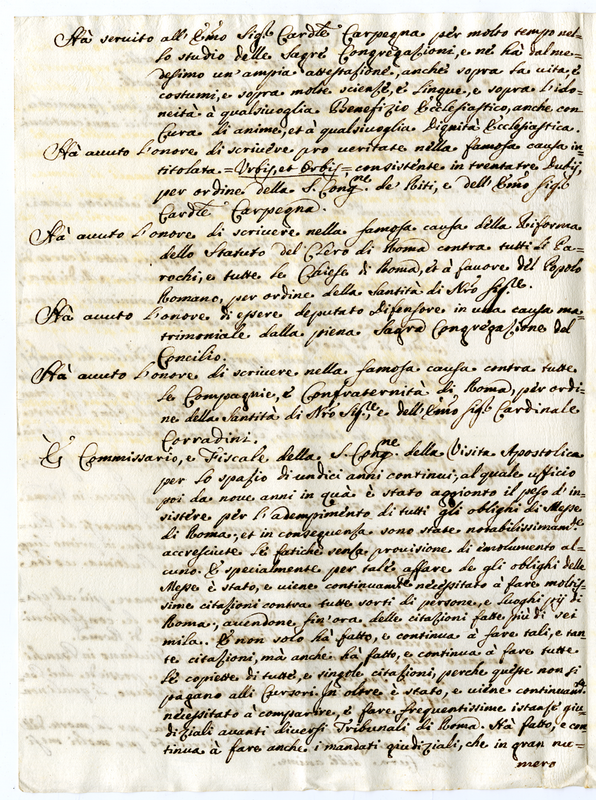 Hà servito all' Emo Sig.r Cardle Carpegna per molto tempo nel=
lo studio delle Sagre Congregazioni, e ne hà dal me=
desimo un' ampia attestazione, anche sopra la vita, e
costumi, e sopra molte scienze, e lingue, e sopra l'ido=
neità à qualsivoglia Benefizio Ecclesiastico, anche con
Cura di anime, et à qualsivoglia Dignità Ecclesiastica.
Hà avuto l'onore di scrivere pro veritate nella famosa causa in=
titolata = Urbis, et Orbis = consistente in trentatre Dubij,
per ordine della S. Congne de' Riti, e dell' Emo Sig.r
Cardle Carpegna.
Hà avuto l'onore di scrivere nella famosa causa della Riforma
dello Statuto del Clero di Roma contra tutti li Pa=
rochi, e tutte le Chiese di Roma, et à favore del Popolo
Romano, per ordine della Santità di Nro Sig.re
Hà avuto l'onore di essere deputato Difensore in una causa ma=
trimoniale dalla piena Sagra Congregazione del
Concilio.
Hà avuto l'onore di scrivere nella famosa causa contra tutte
le Compagnie, e Confraternità di Roma, per ordi=
ne della Santità di Nro Sig.re, e dell' Emo Sig.r Cardinale
Corradini.
È Commissario, e Fiscale della S. Congne della Visita Apostolica
per lo spazio di undici anni continui, al quale uffizio
poi da nove anni in quà è stato aggionto il peso d'in=
sistere per l'adempimento di tutti gli oblighi di Messe
di Roma, et in conseguenza sono state notabilissimamte
accresciute le fatiche senza provisione di emolumento al=
cuno. E specialmente per tale affare de gli oblighi delle
Messe è stato, e viene continuamte necessitato à fare moltis=
sime citazioni contra tutte sorti di persone, e luoghi pij di
Roma, avendone fin' ora delle citazioni fatte più di sei
mila. E non solo hà fatto, e continua à fare tali, e tan
te citazioni, mà anche hà fatto, e continua à fare tutte
le copiette di tutte, e singole citazioni, perche queste non si
pagano alli Cursori. In oltre è stato, e viene continuamte
necessitato à comparire, e fare frequentissime istanze giu
diziali avanti diversi Tribunali di Roma. Hà fatto, e con
tinua à fare anche i mandati giudiziali, che in gran nu=
mero